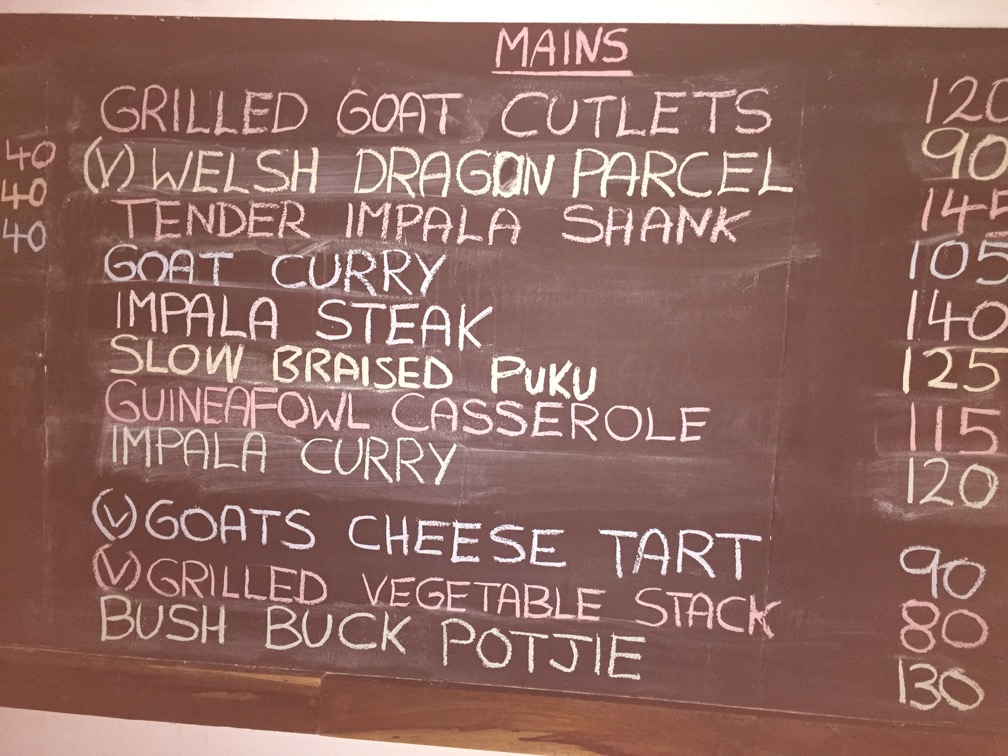 MAINS
GRILLED GOAT CUTLETS 120
40 (V) WELSH DRAGON PARCEL 90
40 TENDER IMPALA SHANK 145
40 GOAT CURRY 105
IMPALA STEAK 140
SLOW BRAISED PUKU 125
GUINEAFOWL CASSEROLE 115
IMPALA CURRY 120
(V) GOATS CHEESE TART 90
(V) GRILLED VEGETABLE STACK 80
BUSH BUCK POTJIE 130